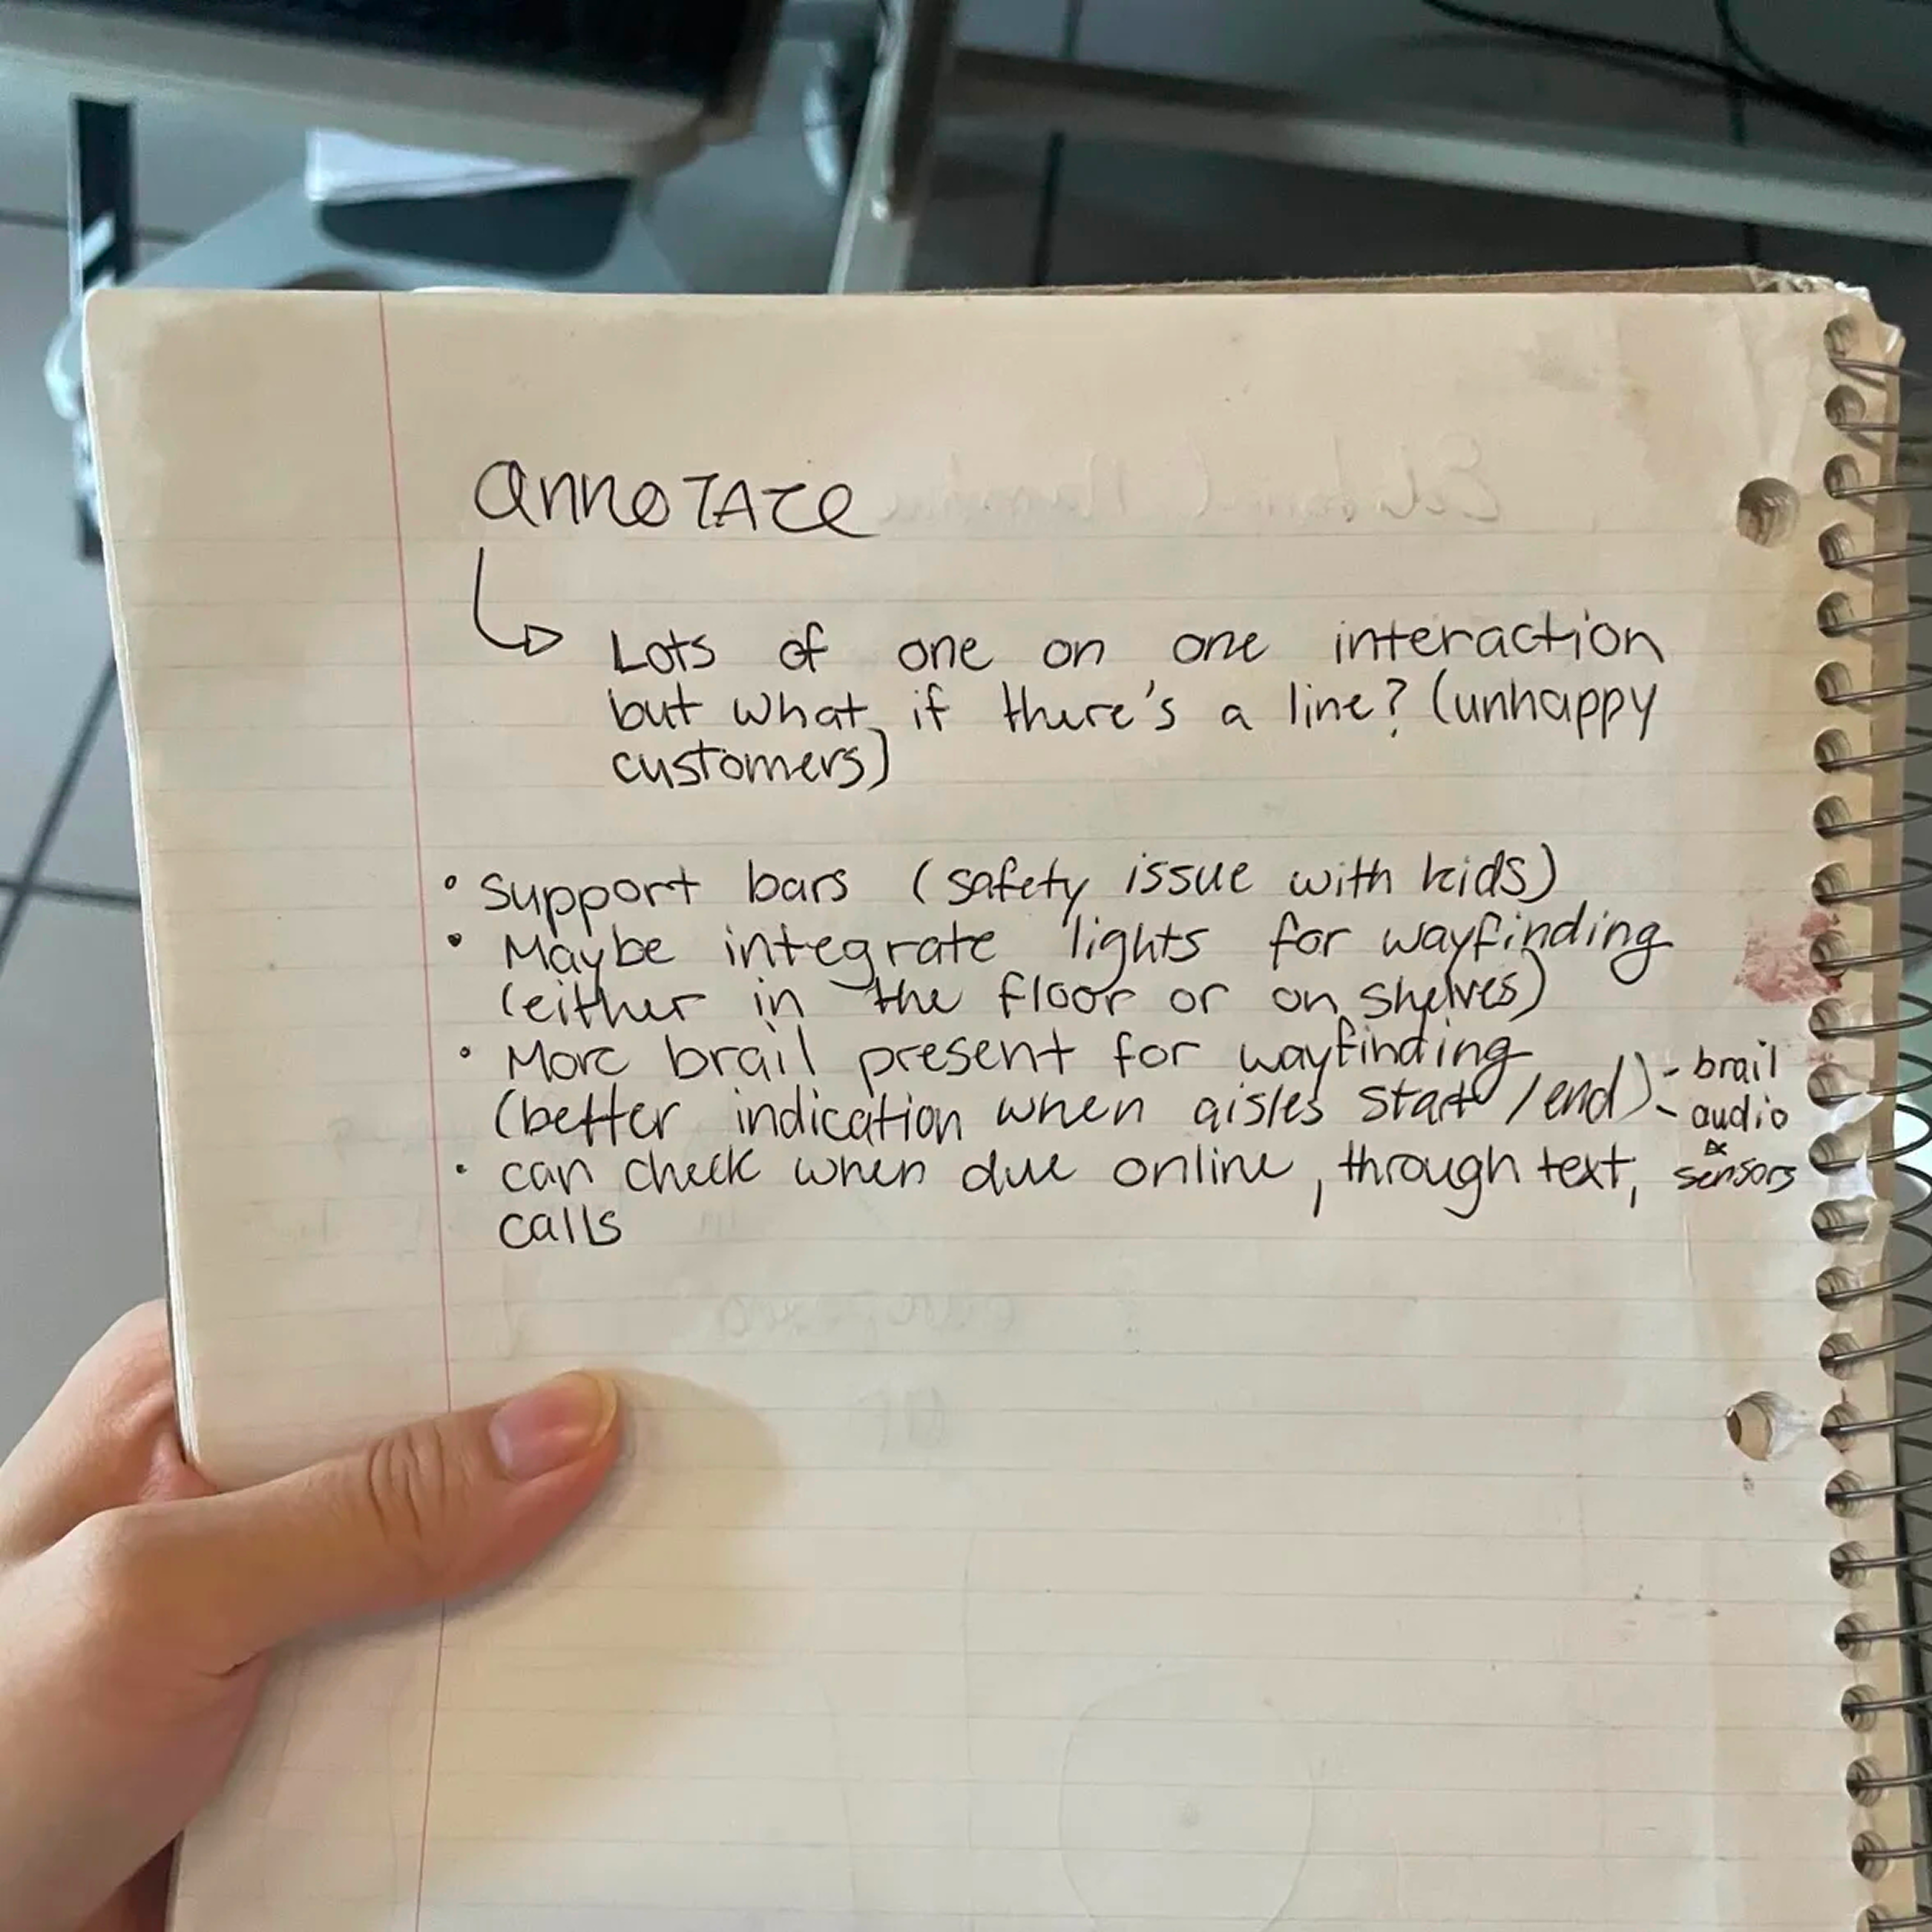 annoTATe
Lots of one on one interaction
but what if there's a line? (unhappy
customers)
• Support bars (safety issue with kids)
• Maybe integrate lights for wayfinding
(either in the floor or on shelves)
• More brail present for wayfinding
(better indication when aisles start/end) - brail
- audio
&
sensors
• can check when due online, through text,
calls